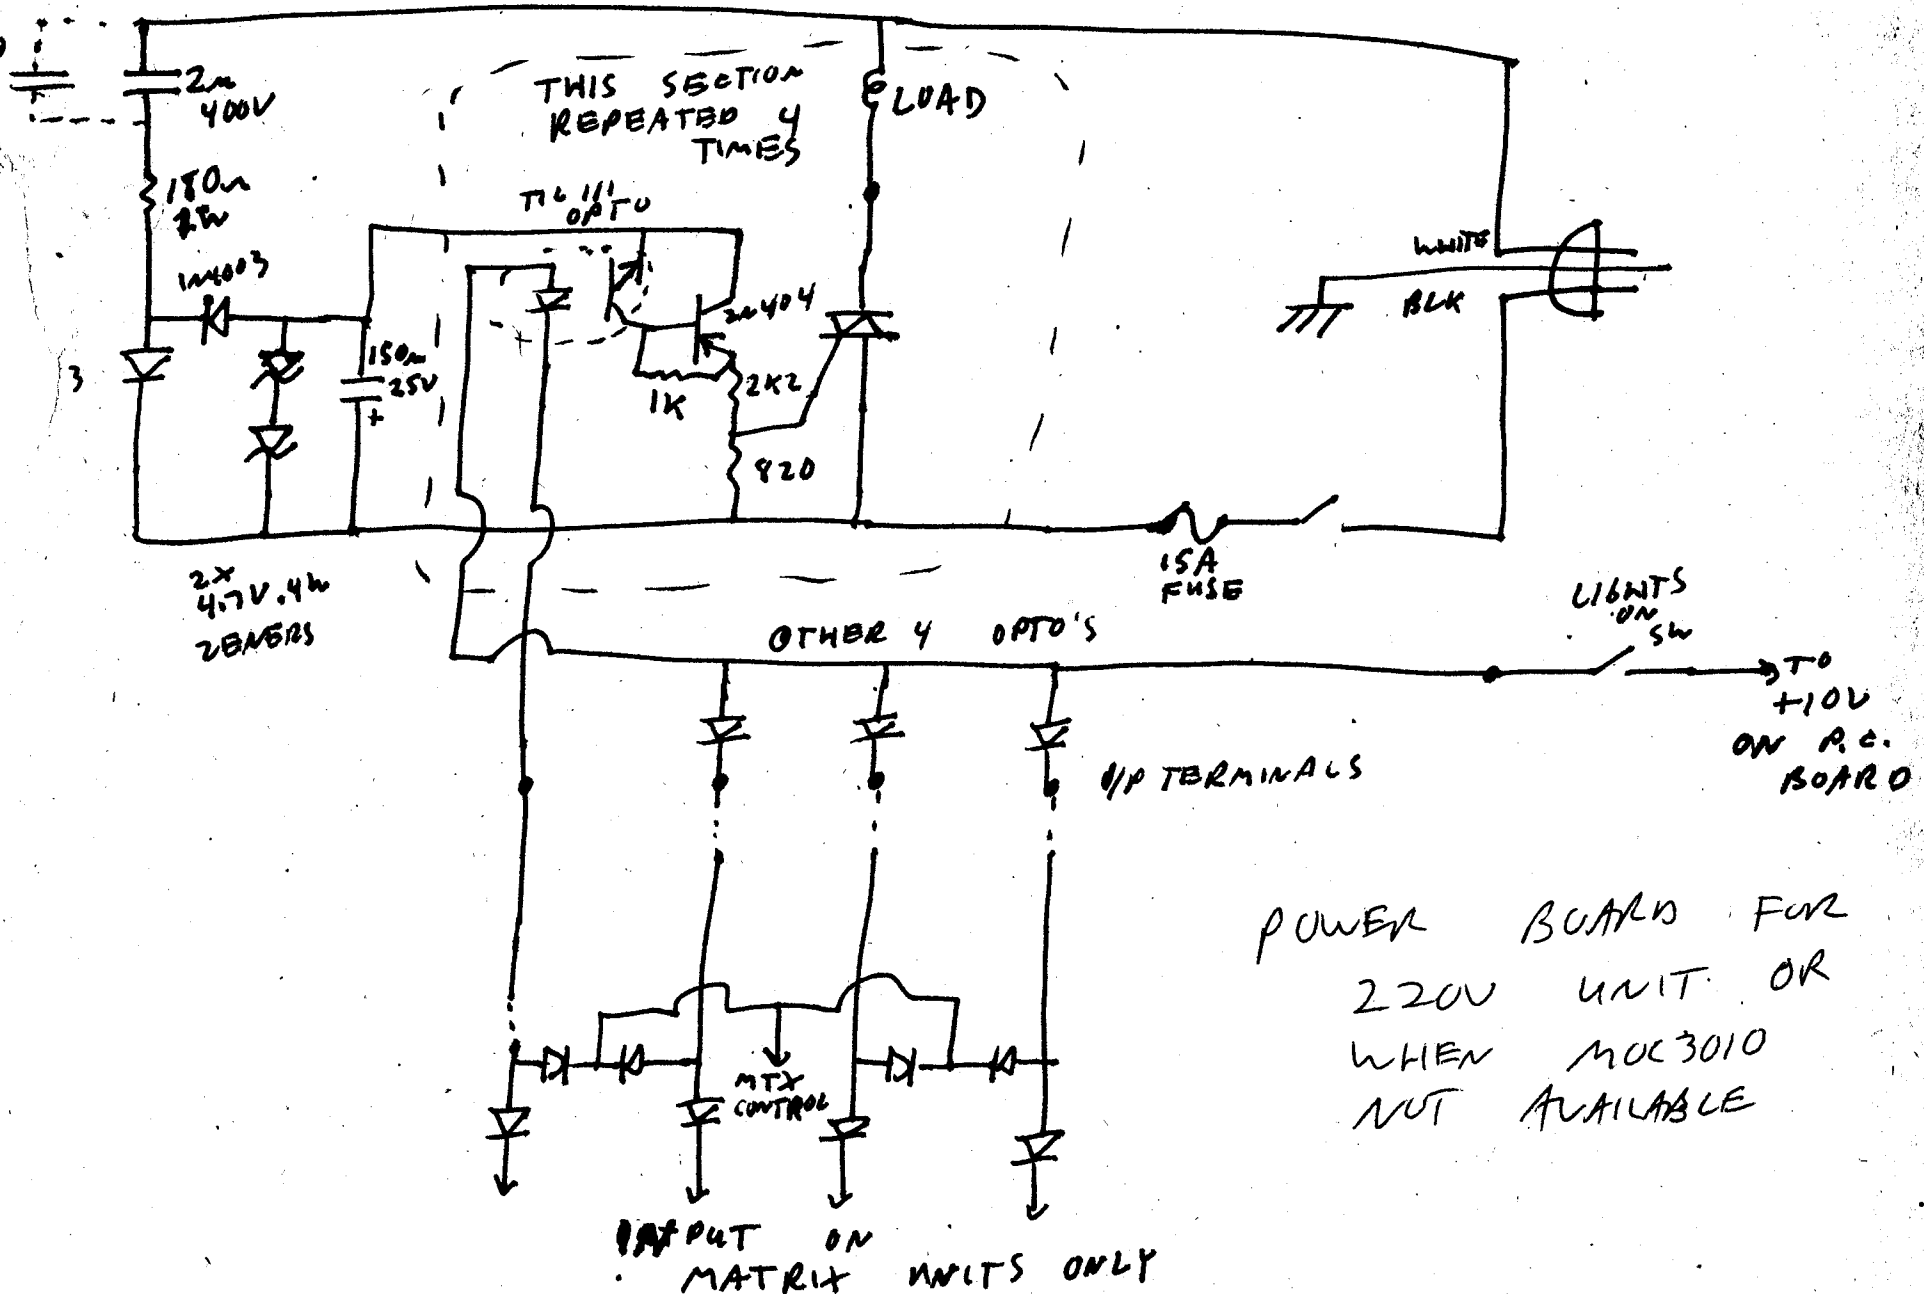 2m
400V
THIS SECTION
REPEATED 4
TIMES
LOAD
180Ω
2W
TIL 111
OPTO
1N4003
WHITE
BLK
2N404
3
150m
25V
+
1K
2K2
820
15A
FUSE
2X
4.7V .4W
ZENERS
LIGHTS
ON
SW
OTHER 4 OPTO'S
TO
+10V
ON P.C.
BOARD
O/P TERMINALS
POWER BOARD FOR
220V UNIT OR
WHEN MOC3010
NOT AVAILABLE
MTX
CONTROL
INPUT ON
MATRIX UNITS ONLY